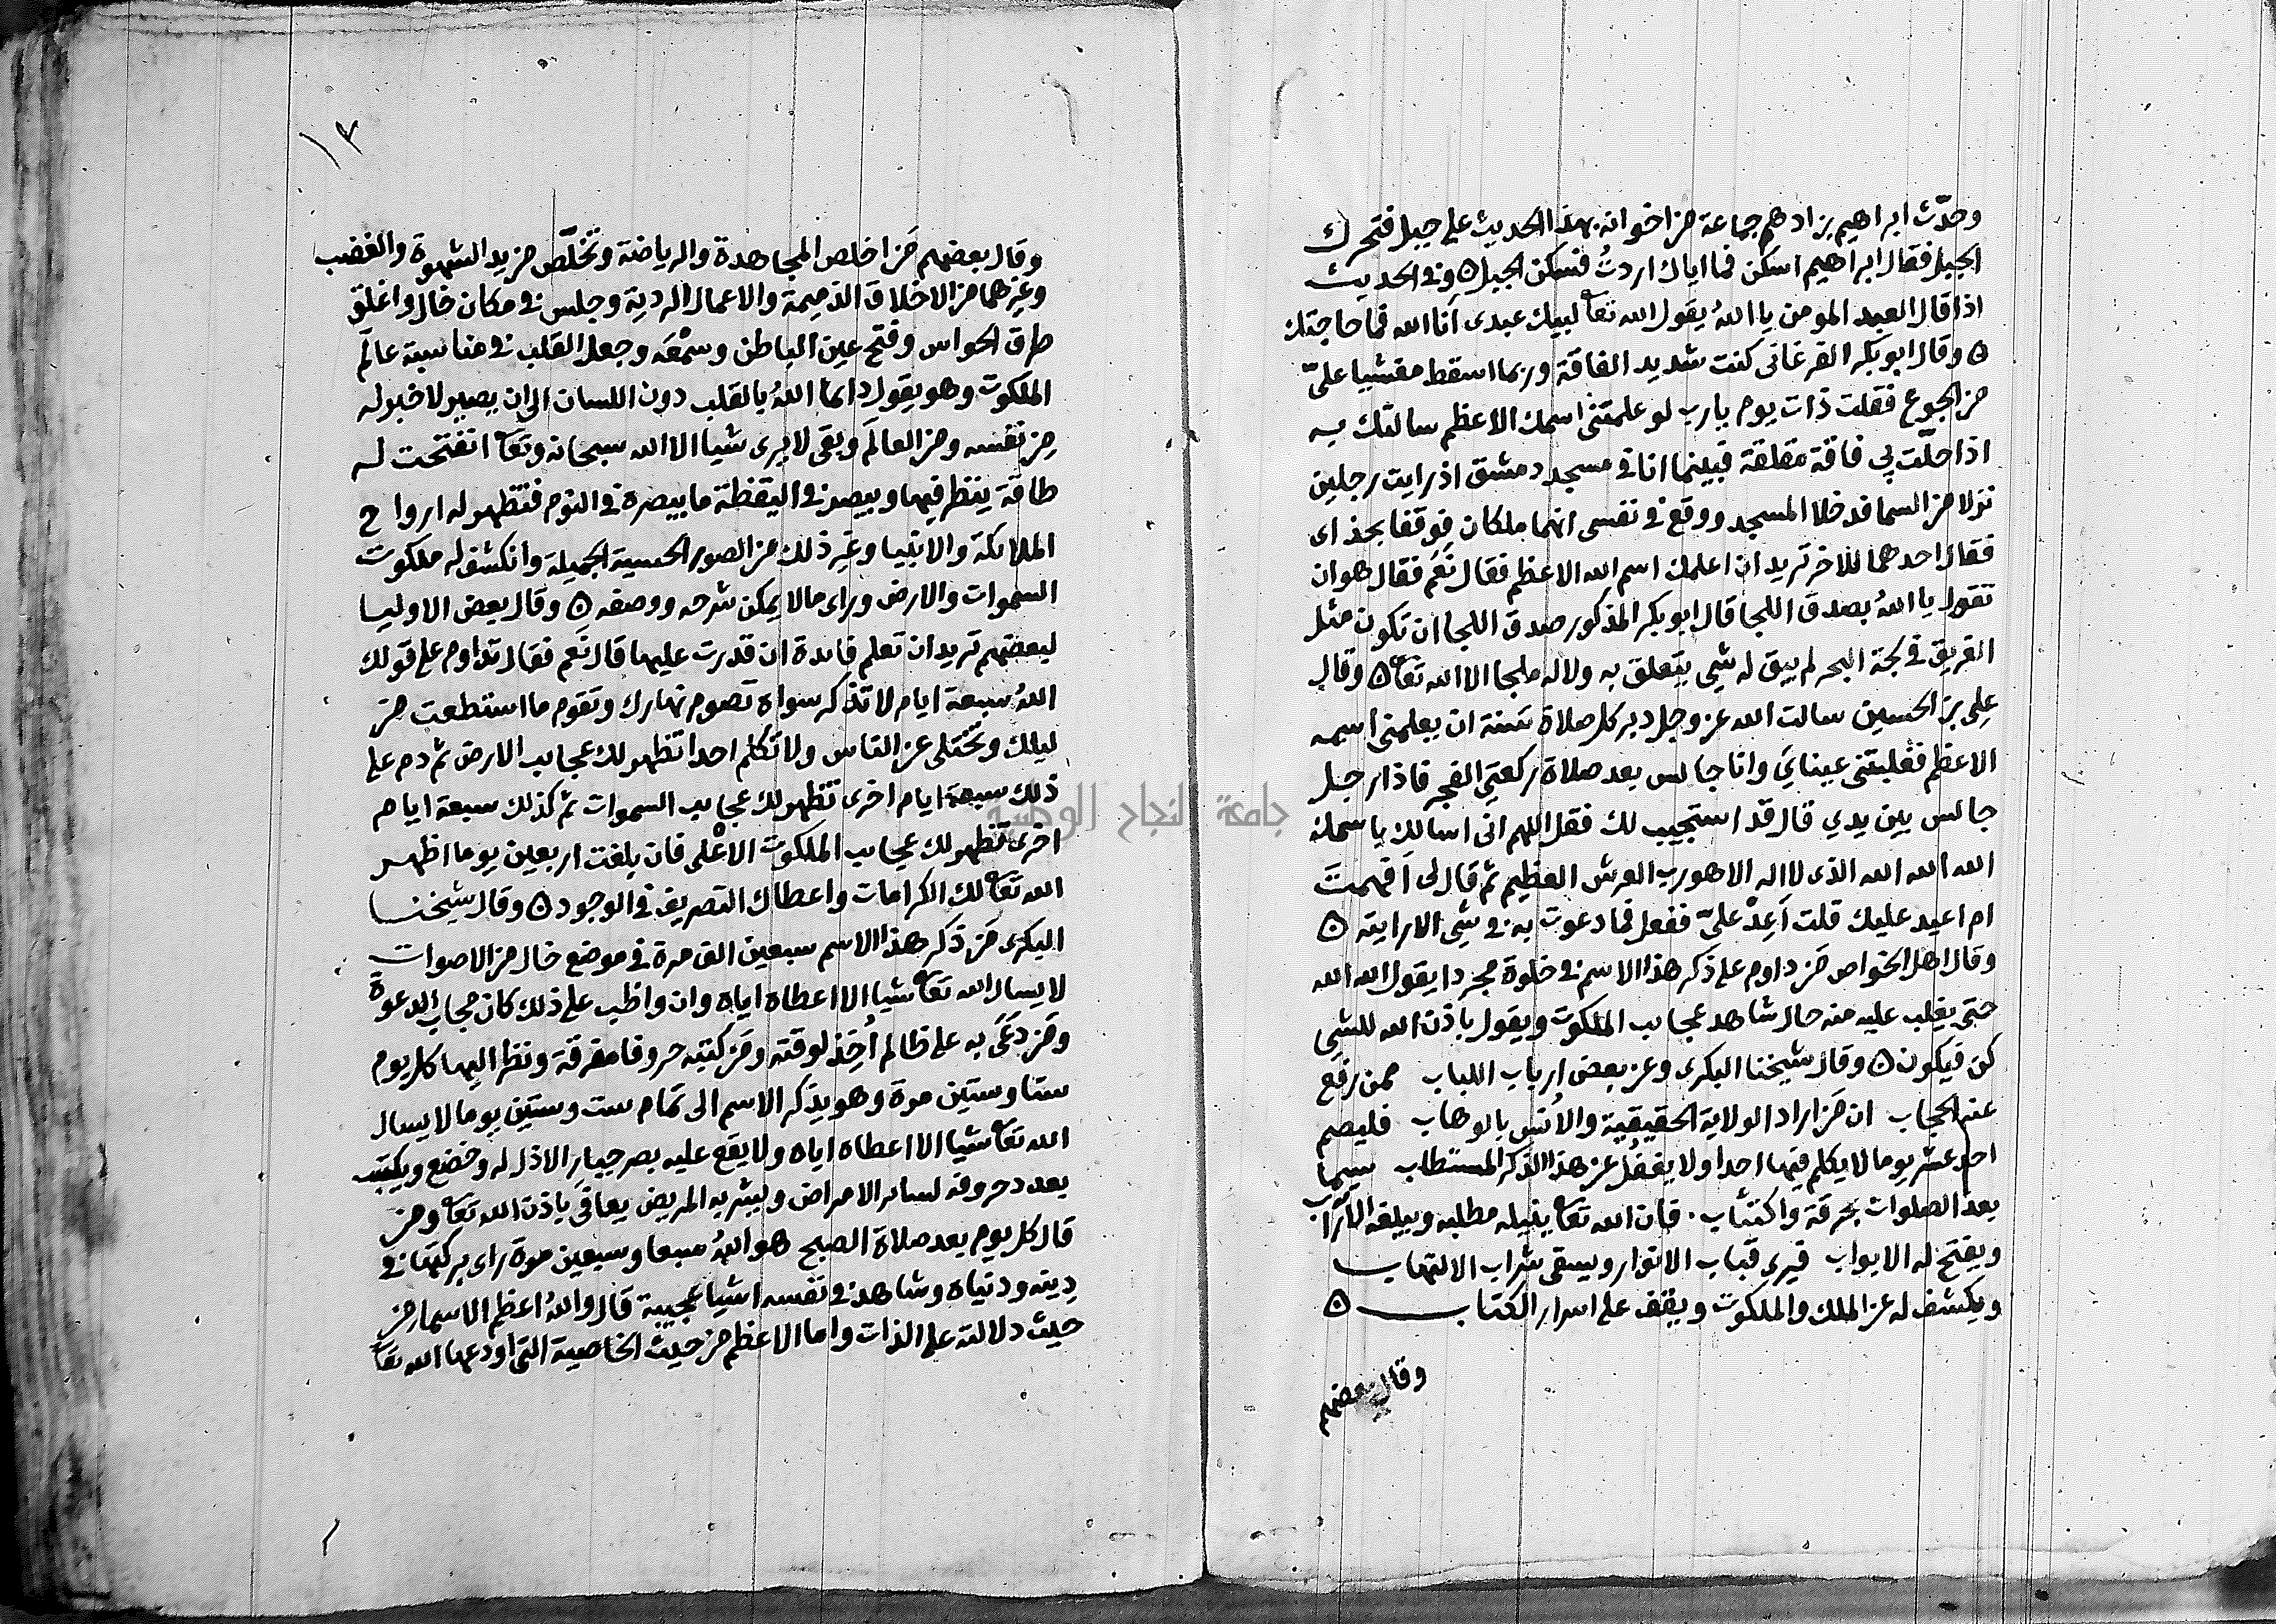 وحدّث ابراهيم بن ادهم جماعة من اخوانه بهذا الحديث على جبل فتحرك
الجبل فقال ابراهيم اسكن فما اياك اردتُ فسكن الجبل ه وفي الحديث
اذا قال العبد المومن يا اللهُ يقول الله تعا لبيك عبدى أنا الله فما حاجتك
ه وقال ابو بكر الفرغانى كنت شديد الفاقة وربما اسقط مغشيا علىّ
من الجوع فقلت ذات يوم يارب لو علمتنى اسمك الاعظم سالتك به
اذا حلّت بي فاقة مقلقة فبينما انا في مسجد دمشق اذ رايت رجلين
نزلا من السما فدخلا المسجد ووقع في نفسى انهما ملكان فوقفا بحذاى
فقال احدهما للاخر تريد ان اعلمك اسم الله الاعظم فقال نَعَم فقال هو ان
تقول يا اللهُ بصدق اللجا قال ابو بكر المذكور صدق اللجا ان تكون مثل
الغريق في لجة البحر لم يبق له شي يتعلق به ولا له ملجا الا الله تعا ه وقال
على بن الحسين سالت الله عز وجل دبر كل صلاة سَنة ان يعلمنى اسمه
الاعظم فغلبتنى عيناىَ وانا جالس بعد صلاة ركعتي الفجر فاذا رجل
جالس بين يدي قال قد استجيب لك فقل اللهم انى اسالك باسمك
الله الله الله الذى لا اله الا هو رب العرش العظيم ثم قال لى اَفهمتَ
ام اعيد عليك قلت اَعِدْ علىّ ففعل فما دعوت به في شي الا رايته ه
وقال اهل الخواص مَن داوم على ذكر هذا الاسم في خلوة مجردا يقول الله الله
حتى يغلب عليه منه حال شاهد عجايب الملكوت ويقول باذن الله للشي
كن فيكون ه وقال شيخنا البكرى وعن بعض ارباب اللباب ممن رفع
عنه الحجاب ان مَن اراد الولاية الحقيقية والاُنس بالوهاب فليصم
احد عشر يوما لا يكلم فيها احدا ولا يغفُل عن هذا الذكر المستطاب سيما
بعد الصلوات بحرقة واكتئاب . فان الله تعا ينيله مطلبه ويبلغه الآراب
ويفتح له الابواب فيرى قباب الانوار ويسقى شراب الالتهاب
ويكشف له عن الملك والملكوت ويقف على اسرار الكتاب ه
وقال بعضهم
١٣
وقال بعضهم مَن اخلص المجاهدة والرياضة وتخلّص من يد الشهوة والغضب
وغيرهما من الاخلاق الذميمة والاعمال الردية وجلس في مكان خال واغلق
طرق الحواس وفتح عين الباطن وسَمْعَه وجعل القلب في مناسبة عالَم
الملكوت وهو يقول دايما اللهُ بالقلب دون اللسان الى ان يصير لا خبر له
من نفسه ومن العالَم وبقى لا يرى شيا الا الله سبحانه وتعا انفتحت له
طاقة ينظر فيها ويبصر في اليقظة ما يبصره في النوم فتظهر له ارواح
الملايكة والانبيا وغير ذلك من الصور الحسية الجميلة وانكشف له ملكوت
السموات والارض وراى مالا يمكن شرحه ووصفه ه وقال بعض الاوليا
لبعضهم تريد ان تعلم فايدة ان قدرت عليها قال نَعَم فقال تداوم على قولك
اللهُ سبعة ايام لا تذكر سواه تصوم نهارك وتقوم ما استطعت من
ليلك وتختلى عن الناس ولا تكلم احدا تظهر لك عجايب الارض ثم دم على
ذلك سبعة ايام اخرى تظهر لك عجايب السموات ثم كذلك سبعة ايام
اخرى تظهر لك عجايب الملكوت الاعلى فان بلغت اربعين يوما اظهر
الله تعا لك الكرامات واعطاك التصريف في الوجود ه وقال شيخنا
البكرى مَن ذكر هذا الاسم سبعين الف مرة في موضع خال من الاصوات
لا يسال الله تعا شيا الا اعطاه اياه وان واظب على ذلك كان مجاب الدعوة
ومَن دَعَى به على ظالم اُخِذ لوقته ومَن كتبه حروفا مفرقة ونظر اليها كل يوم
ستا وستين مرة وهو يذكر الاسم الى تمام ست وستين يوما لا يسال
الله تعا شيا الا اعطاه اياه ولا يقع عليه بصر جبارِ الا ذل له وخضع ويكتب
بعدد حروفه لساير الامراض ويشربه المريض يعافى باذن الله تعا ومن
قال كل يوم بعد صلاة الصبح هو اللهُ سبعا وسبعين مرة راى بركتها في
دِينه ودنياه وشاهد في نفسه اشيا عجيبة قال واللهُ اعظم الاسما من
حيث دلالته على الذات واما الاعظم من حيث الخاصية التى اودعها الله تعا
جامعة النجاح الوطنية